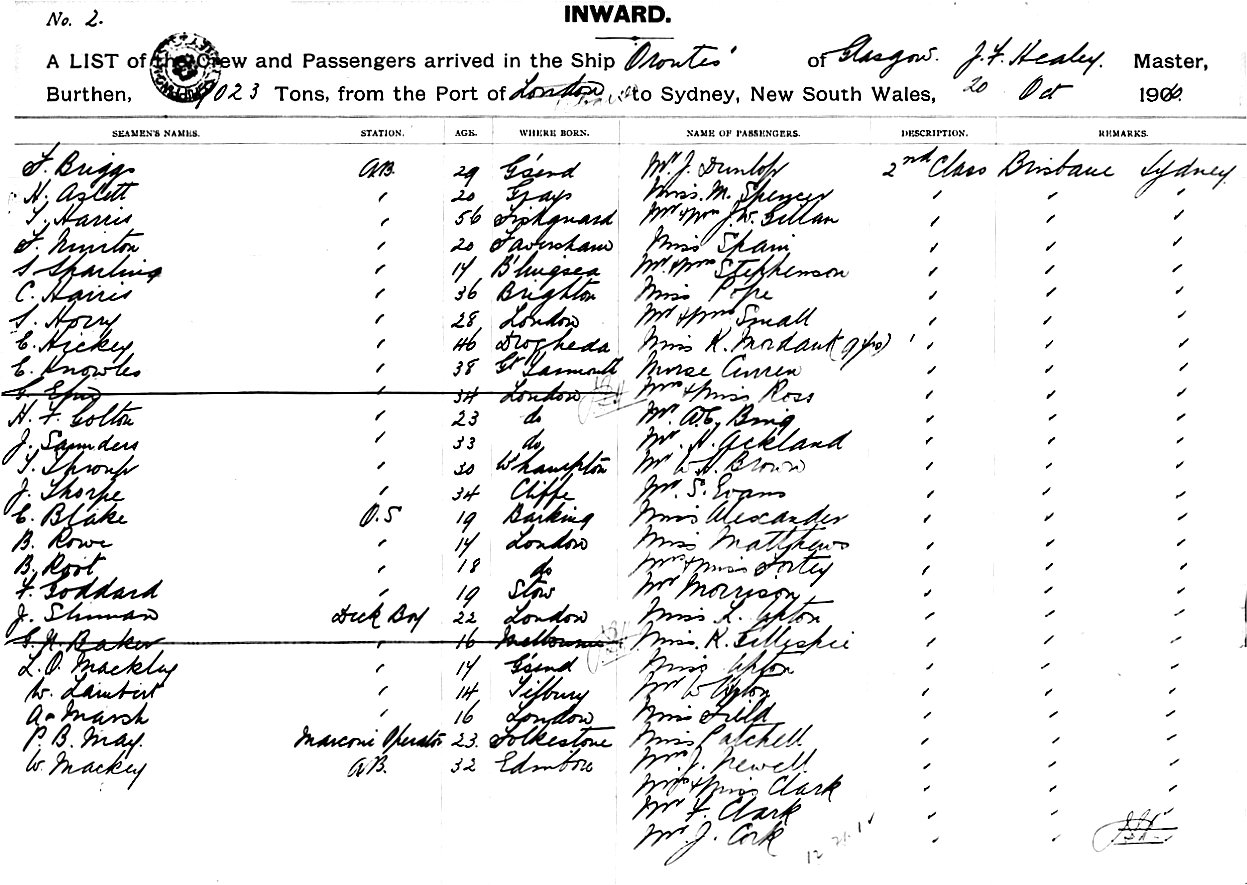 No. 2.
INWARD.
A LIST of the Crew and Passengers arrived in the Ship Orontes of Glasgow. J. F. Healey. Master,
Burthen, 9023 Tons, from the Port of London to Sydney, New South Wales, 20 Oct 190
SEAMEN'S NAMES. STATION. AGE. WHERE BORN. NAME OF PASSENGERS. DESCRIPTION. REMARKS.
F. Briggs A.B. 29 G'send Mr. J. Dunlop 2nd Class Brisbane Sydney
H. Aslett " 20 Grays Miss. M. Spencer " " "
T. Harris " 56 Fishguard Mr & Mrs J. W. Gillan " " "
F. " 20 Faversham Miss Spain " " "
S Sparling " B'lingsea Mr. & Mrs Stephenson " " "
C. Harris " 36 Brighton Miss Pope " " "
S. Horry " 28 London Mr & Mrs Small " " "
E. Hickey " 40 Drogheda Miss K. Mordaunt " " "
E. Knowles " 38 Gt Yarmouth Nurse Curren " " "
G. " 34 London Mrs & Miss Ross " " "
H. F. Colton " 23 do Mr. A.E. Bing " " "
J. Saunders " 33 do Mr. H. Ackland " " "
T. " 30 W'hampton Mr W. H. Brown " " "
J. Thorpe " 34 Cliffe Mr. S. Evans " " "
E. Blake O.S 19 Barking Miss Alexander " " "
B. Rowe " London Miss Matthews " " "
B. Root " 18 do Mrs & Miss Fortey " " "
F. Goddard " 19 Stow Mr Morrison " " "
J. Deck Boy 22 London Miss L. Upton " " "
G. N. Baker " 16 Melbourne Miss. K. Gillespie " " "
L. O. Mackley " G'send Miss Upton " " "
W. Lambert " 14 Tilbury Mr W Upton " " "
A. Marsh " 16 London Miss Field " " "
P. B. May. Marconi Operator 23. Folkestone Miss Patchell " " "
W. Mackey A.B. 32 Mrs. J. Newell " " "
Mrs & Miss Clark " " "
Mr F. Clark " " "
Mr J. Cork " "